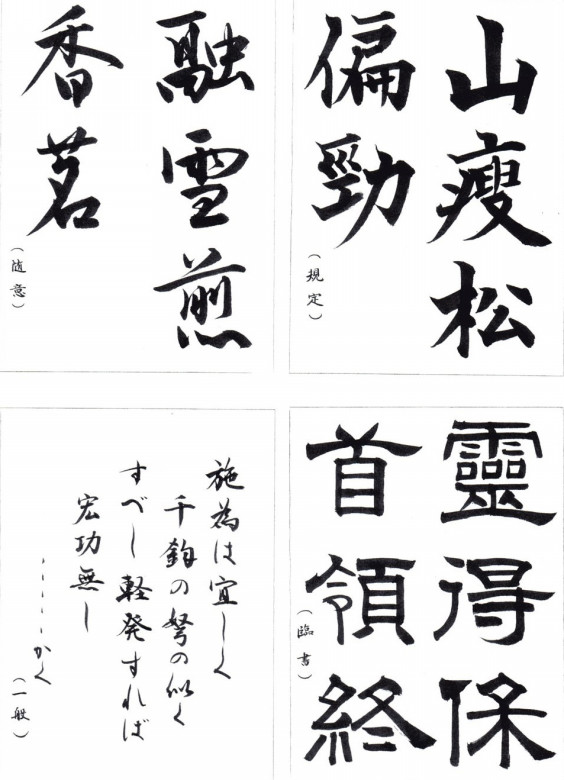 山瘦松
偏勁
（規定）
融雪煎
香茗
（随意）
靈得保
首領終
（臨書）
施為は宜しく
千鈞の弩の似く
すべし軽発すれば
宏功無し
、、、、、かく
（一般）